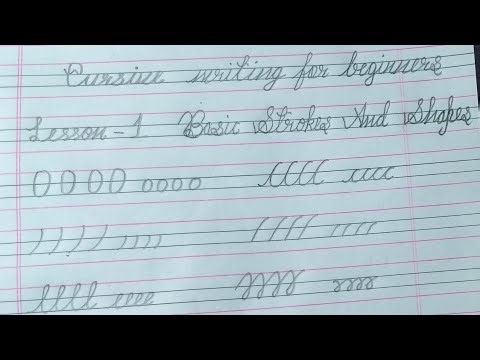 Cursive writing for beginners
Lesson-1 Basic Strokes And Shapes